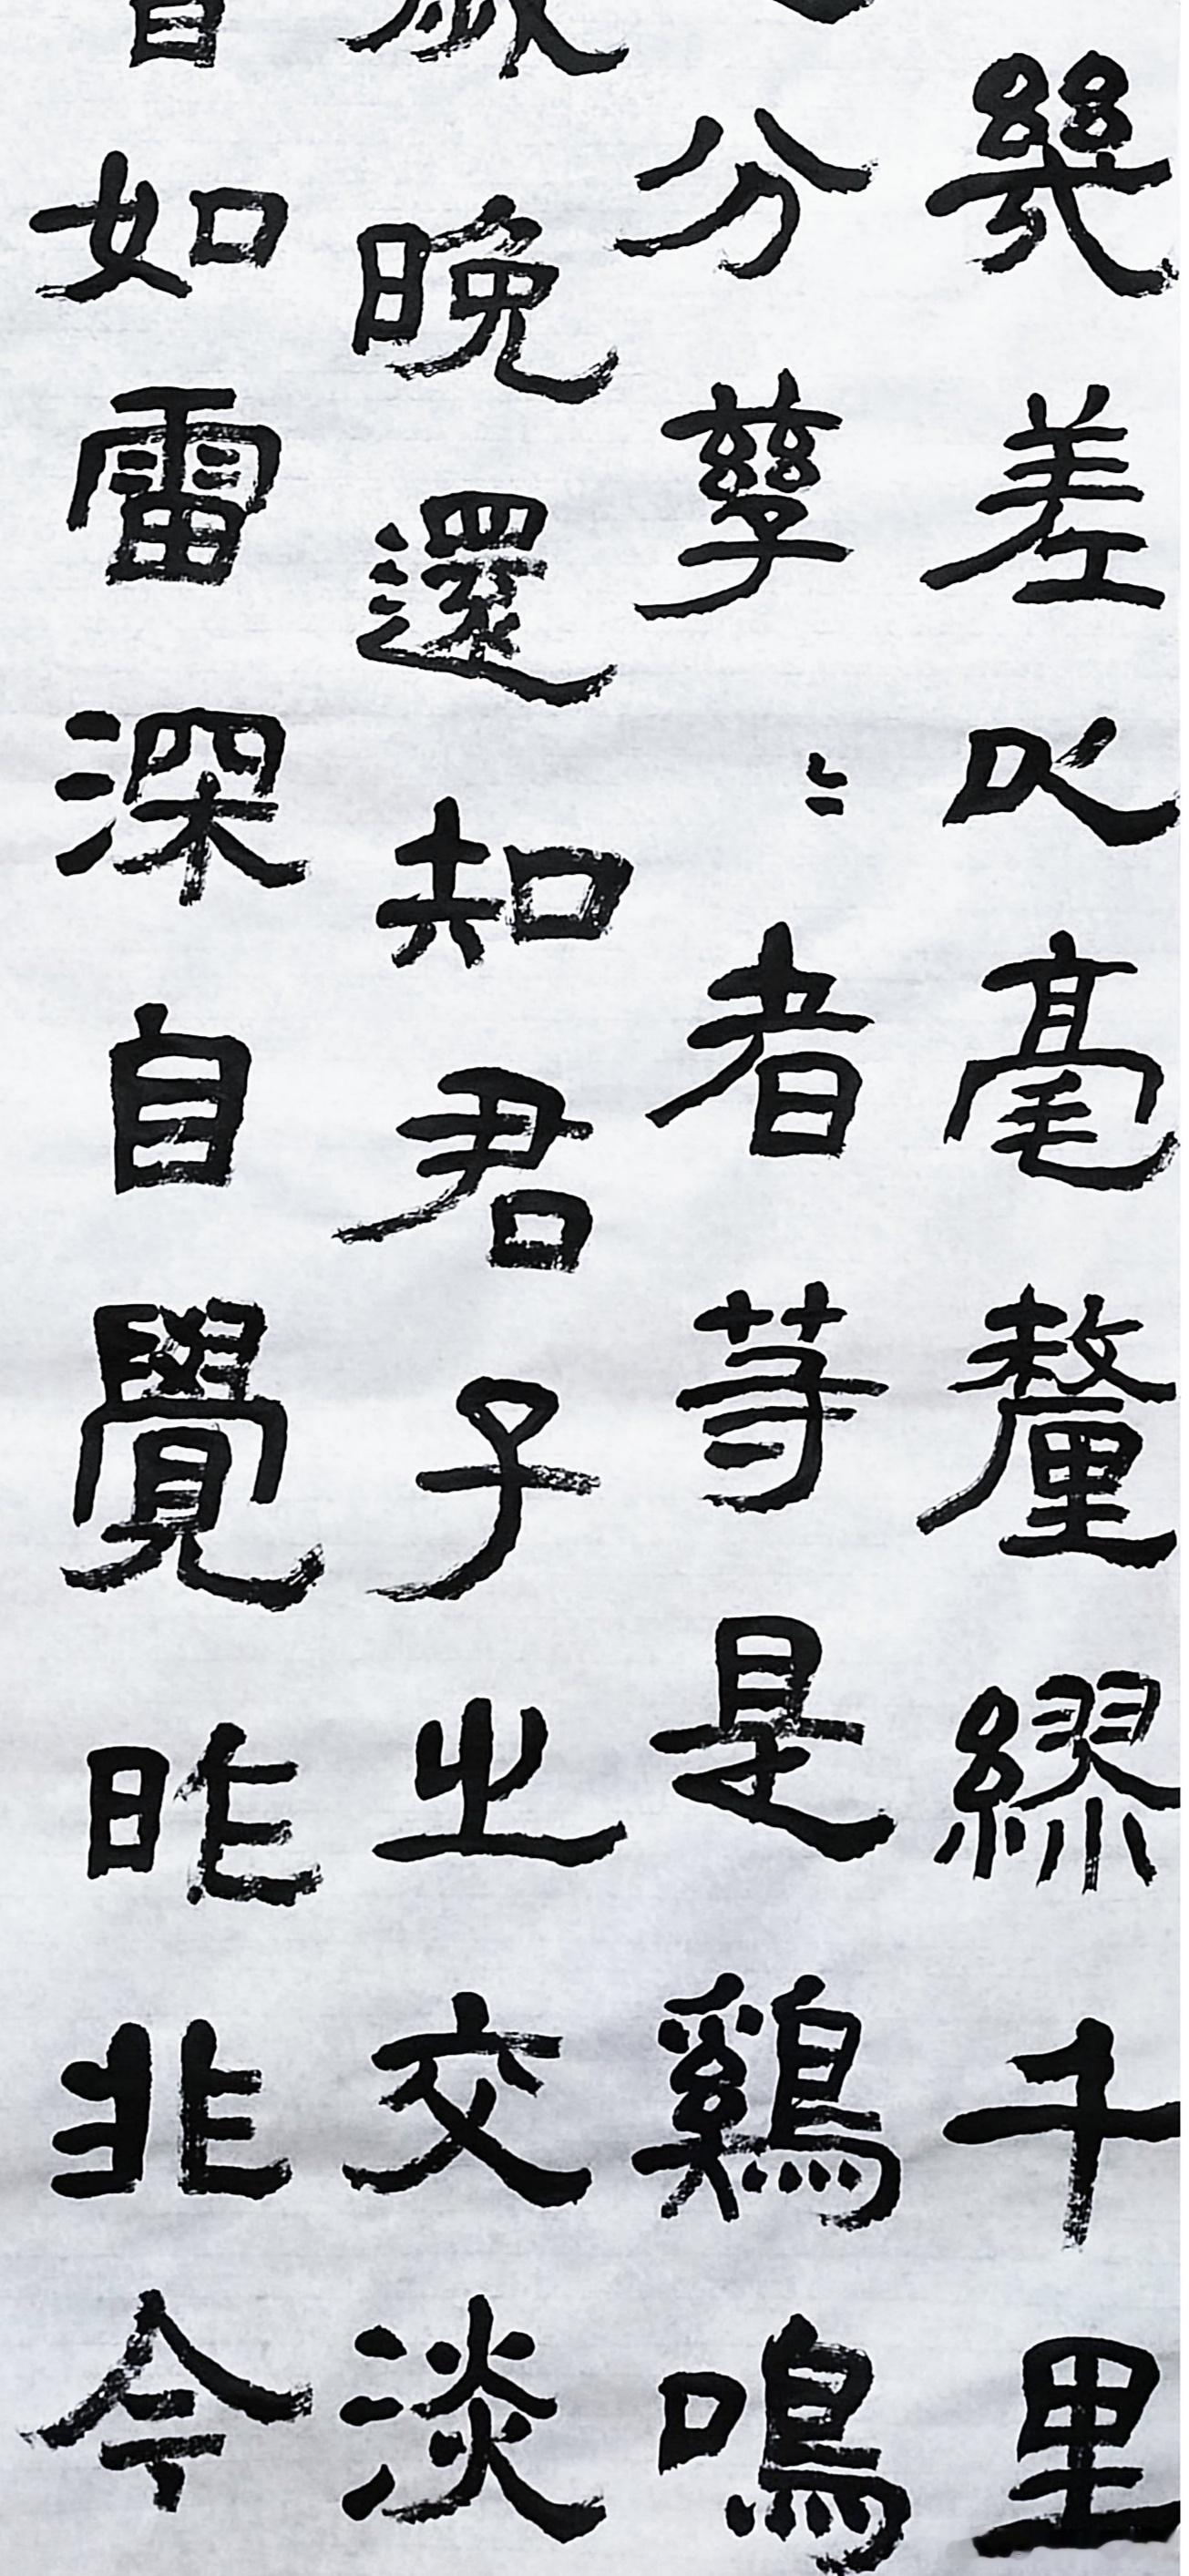 幾差以毫釐繆千里
分孳〻者等是鷄鳴
晚還知君子之交淡
如雷深自覺昨非今